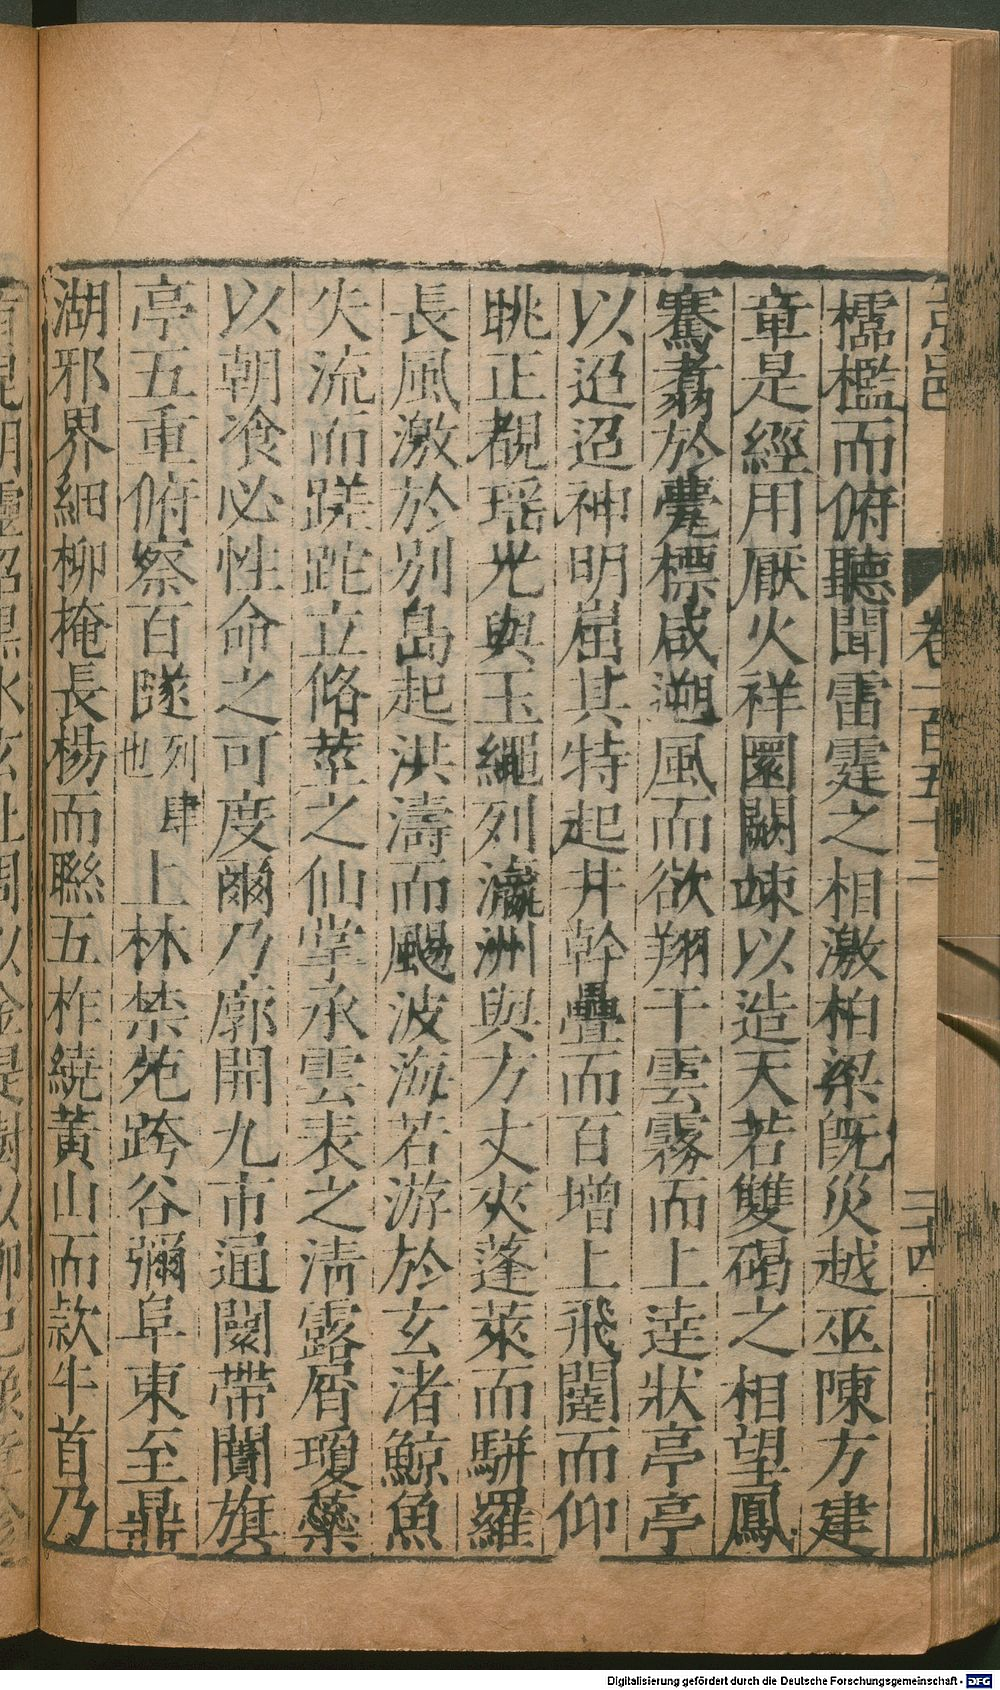 京邑
卷一百五十二
三十四
櫺檻而俯聽聞雷霆之相激柏梁旣災越巫陳方建
章是經用厭火祥圜闕竦以造天若雙碣之相望鳳
騫翥於甍標咸遡風而欲翔干雲霧而上逹狀亭亭
以迢迢神明崛其特起井幹疊而百增上飛闥而仰
眺正覩瑶光與玉繩列瀛洲與方丈夾蓬萊而駢羅
長風激於別島起洪濤而颺波海若游於玄渚鯨魚
失流而蹉跎立脩莖之仙掌承雲表之淸露屑瓊蘂
以朝飡必性命之可度爾乃廓開九市通闤帶闠旗
亭五重俯察百隧列肆也上林禁苑跨谷彌阜東至鼎
湖邪界細柳掩長楊而聯五柞繞黃山而款牛首乃
Digitalisierung gefördert durch die Deutsche Forschungsgemeinschaft - DFG